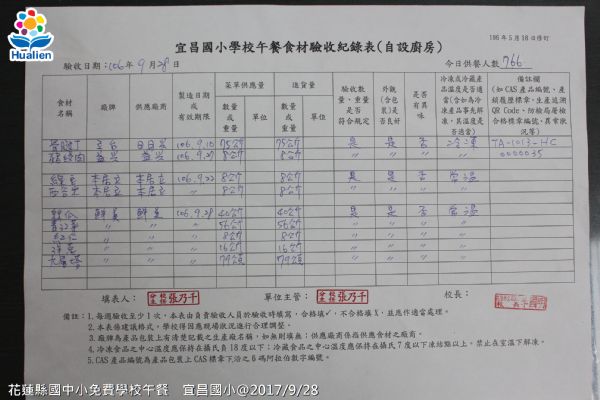 Hualien
105年5月16日修訂
宜昌國小學校午餐食材驗收紀錄表(自設廚房)
驗收日期:106年9月28日 今日供餐人數766
食材名稱 廠牌 供應商 製造日期或有效期限 菜單供應量 數量或重量 單位 進貨量 數量或重量 單位 驗收數量、重量是否符合規定 外觀(含包裝)是否良好 是否有異味 冷凍或冷藏產品溫度是否適當(含如為冷凍產品事先解凍,其溫度是否適當) 備註欄(如CAS產品編號、產銷履歷標章、生產追溯QR Code、防檢局屠檢合格標章編號、異常狀況等)
106.9.10 75公斤 75公斤 是 是 否 冷凍 TA-1013-HC
益兴 益兴 106.9.27 8公斤 8公斤 〃 〃 〃 〃 0000035
106.9.22 8公斤 8公斤 是 是 否 常溫
〃 8公斤 8公斤 〃 〃 〃 〃
106.9.28 40公斤 40公斤 是 是 否 常溫
〃 〃 〃 56公斤 56公斤 〃 〃 〃 〃
〃 〃 〃 8公斤 8公斤 〃 〃 〃 〃
洋蔥 〃 〃 〃 16公斤 16公斤 〃 〃 〃 〃
〃 〃 〃 〃 〃 〃 〃
填表人: 張乃千 單位主管: 張乃千 校長:
備註:1.每週驗收至少1次,本表由負責驗收人員於驗收時填寫,合格填✓,不合格填X,並應作適當處理。
2.本表係建議格式,學校得因應現場狀況進行合理調整。
3.廠牌為產品包裝上有清楚記載之生產廠名稱,如無則填無;供應廠商係指供應食材之廠商。
4.冷凍食品之中心溫度應保持在攝氏負18度以下;冷藏食品之中心溫度應保持在攝氏7度以下凍結點以上,禁止在室溫下解凍。
5.CAS產品編號為產品包裝上CAS標章下沿之6碼阿拉伯數字編號。
花蓮縣國中小免費學校午餐 宜昌國小@2017/9/28